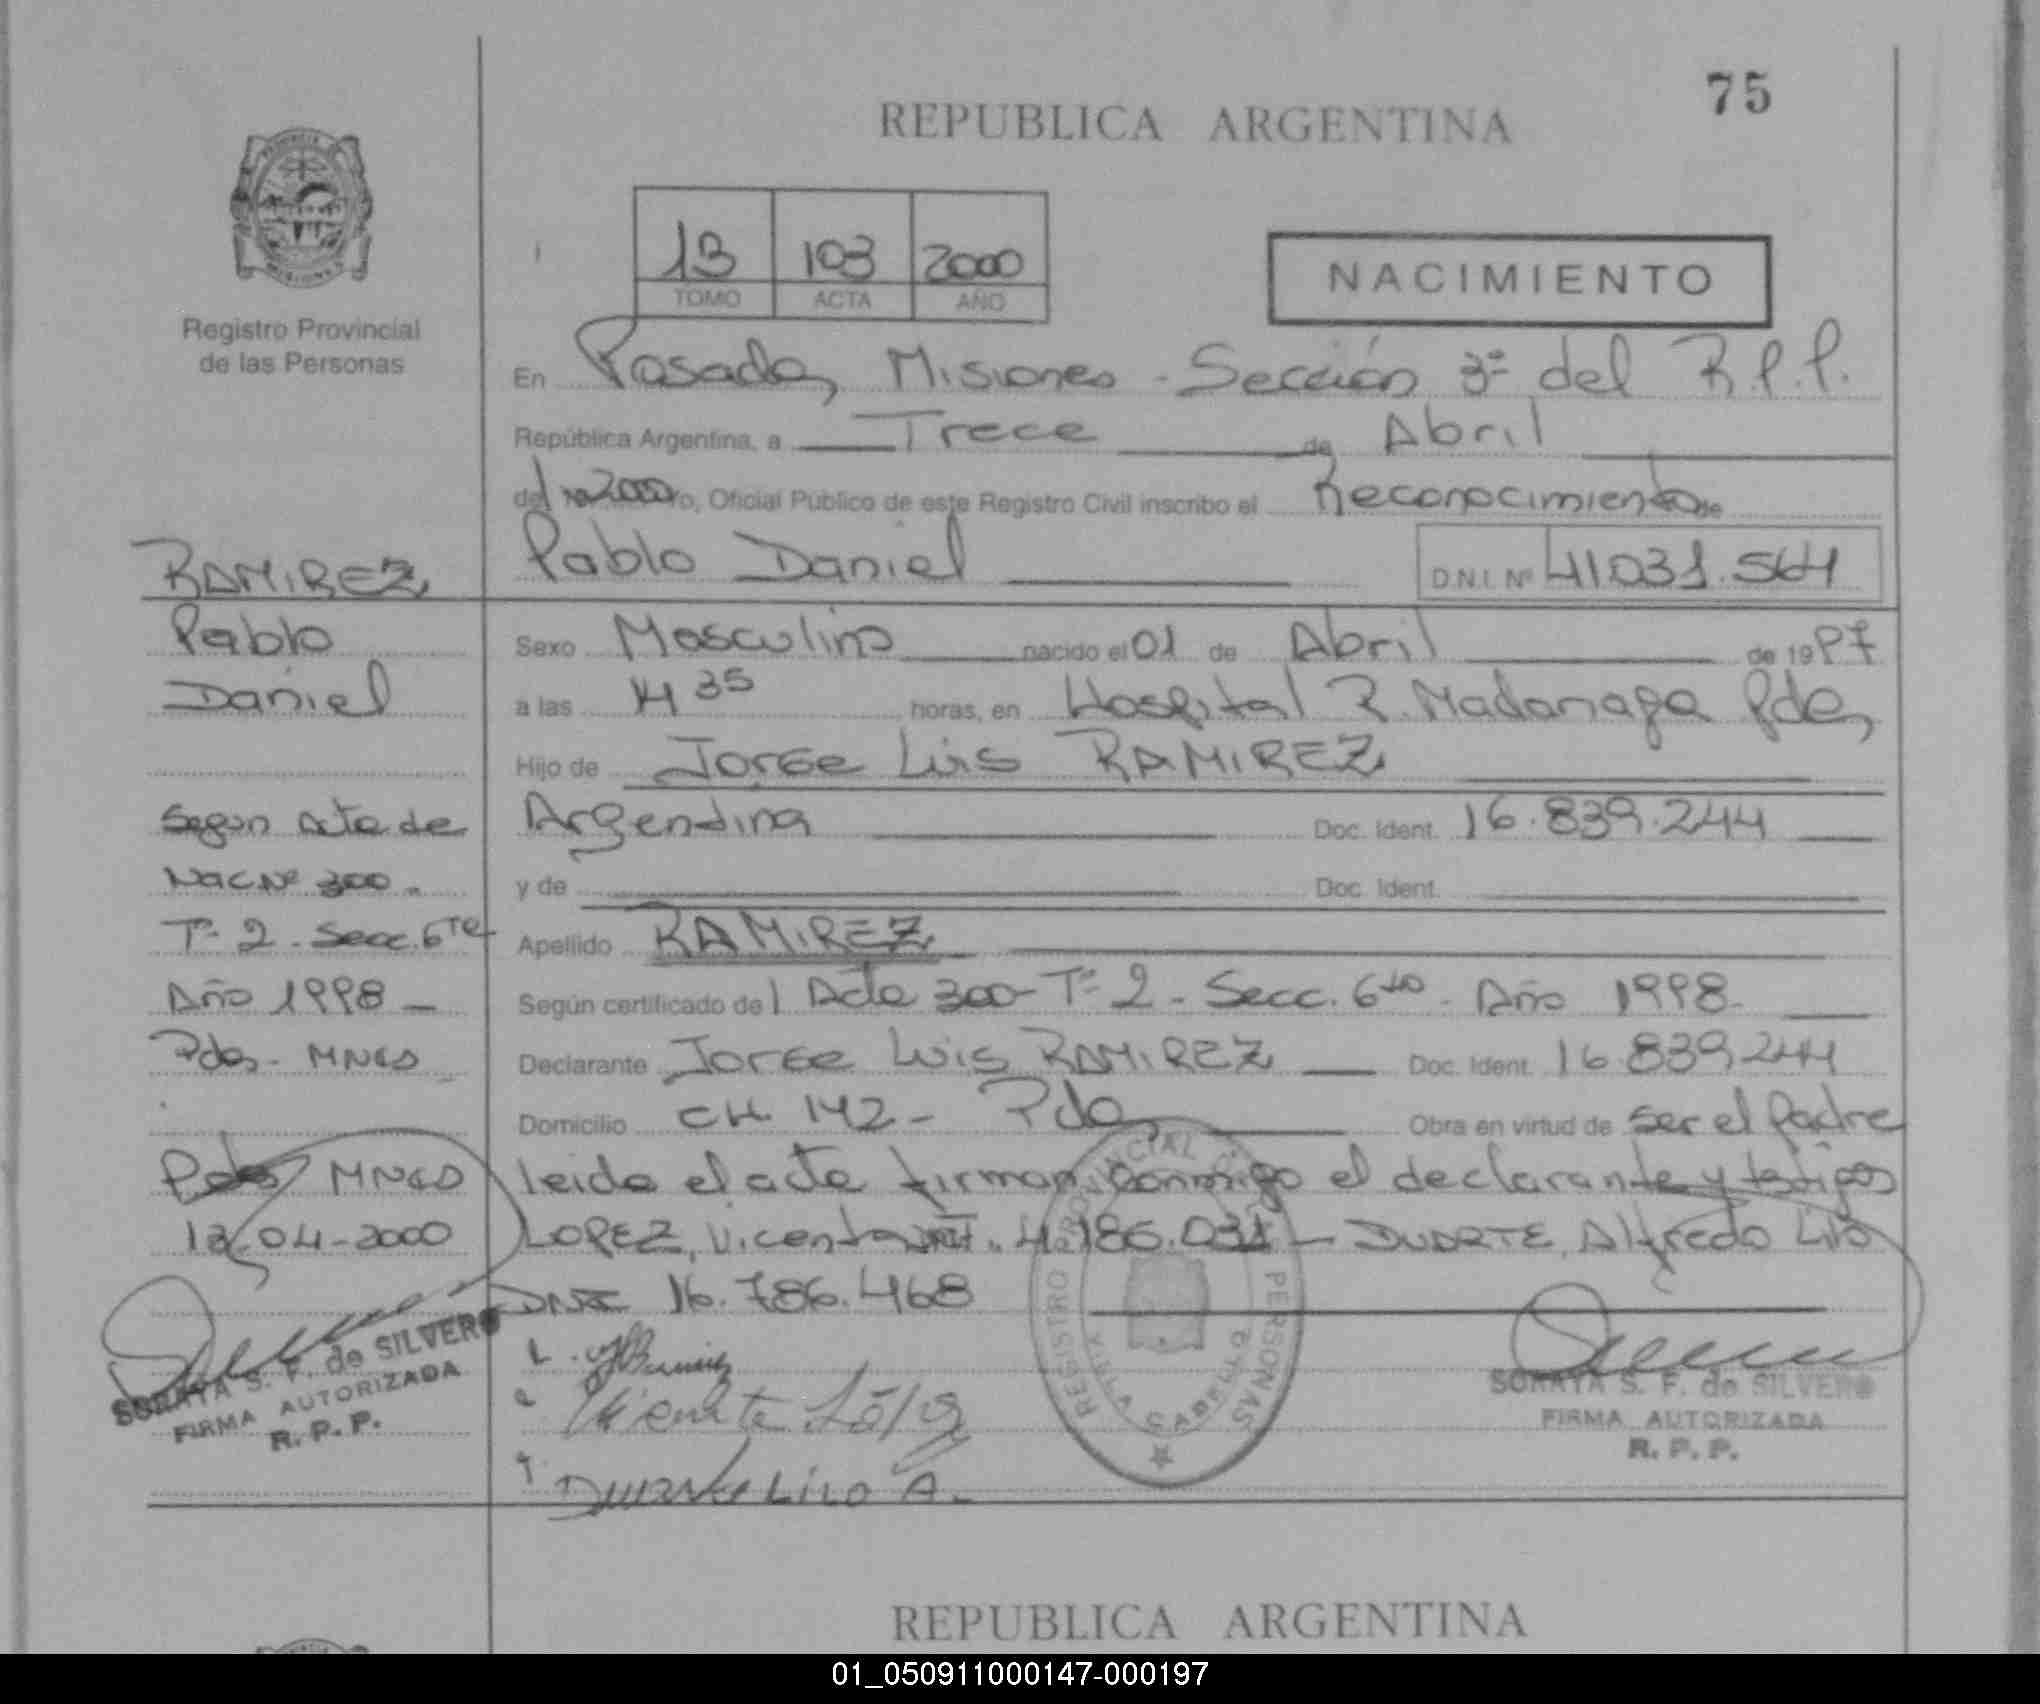 75
REPUBLICA ARGENTINA
13 103 2000
TOMO ACTA AÑO
NACIMIENTO
Registro Provincial
de las Personas
En Posadas, Misiones - Sección 3ª del R.P.P.
República Argentina, a Trece de Abril
del 2000 yo, Oficial Público de este Registro Civil inscribo el Reconocimiento de
Pablo Daniel D.N.I. Nº 41.031.564
Sexo Masculino nacido el 01 de Abril de 1997
a las 14 35 horas, en Hospital R. Madariaga Pdas,
Hijo de Jorge Luis RAMIREZ
Argentina Doc. Ident. 16.839.244
y de Doc. Ident.
Apellido RAMIREZ
Según certificado del Acta 300 - Tº 2 - Secc. 6to - Año 1998
Declarante Jorge Luis RAMIREZ Doc. Ident. 16.839.244
Domicilio CH. 142 - Pdas Obra en virtud de ser el padre
leida el acta firman conmigo el declarante y testigos
LOPEZ, Vicenta 4.186.031 - DUARTE, Alfredo Lilo
DNI 16.786.468
Vicenta López
Duarte Lilo A.
RAMIREZ
Pablo
Daniel
Segun Acta de
Nac Nº 300 -
Tº 2 - Secc. 6ta
Año 1998 -
Pdas - MNES
Pdas MNES
13-04-2000
SORAYA S. F. de SILVERO
FIRMA AUTORIZADA
R. P. P.
REGISTRO PROVINCIAL PERSONAS
CABRERO
SORAYA S. F. de SILVERO
FIRMA AUTORIZADA
R. P. P.
REPUBLICA ARGENTINA
01_050911000147-000197